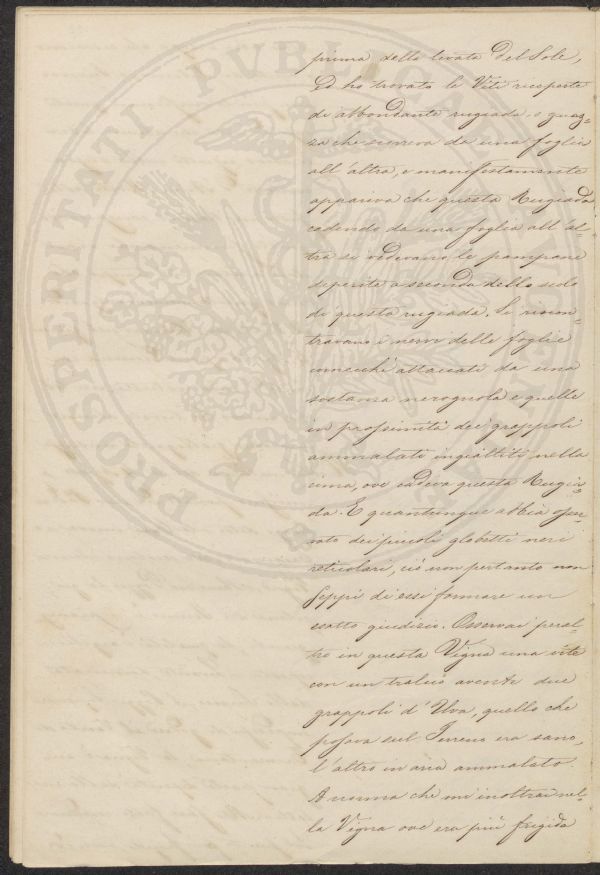 prima della levata del Sole,
ed ho trovato le Viti ricoperte
di abbondante rugiada, o guaz=
za che scorreva da una foglia
all'altra, e manifestamente
appariva che questa Rugiada
cadendo da una foglia all'al=
tra si vedevano le pampane
a seconda dello
di questa rugiada. Si rincon=
travano i nervi delle foglie
attaccati da una
sostanza nerognola e quelle
in prossimità dei grappoli
ammalati ingialliti nella
cima, ove cadeva questa Rugia=
da. E quantunque abbia osser=
vato dei piccoli globetti neri
reticolari, ciò non pertanto non
seppi di essi formare un
esatto giudizio. Osservai peral=
tro in questa Vigna una vite
con un tralcio avente due
grappoli d'Uva, quello che
posava sul Terreno era sano,
l'altro in aria ammalato
A norma che mi inoltrai nel=
la Vigna ove era più frigido
PROSPERITATI PVBLICAE AVGENDAE